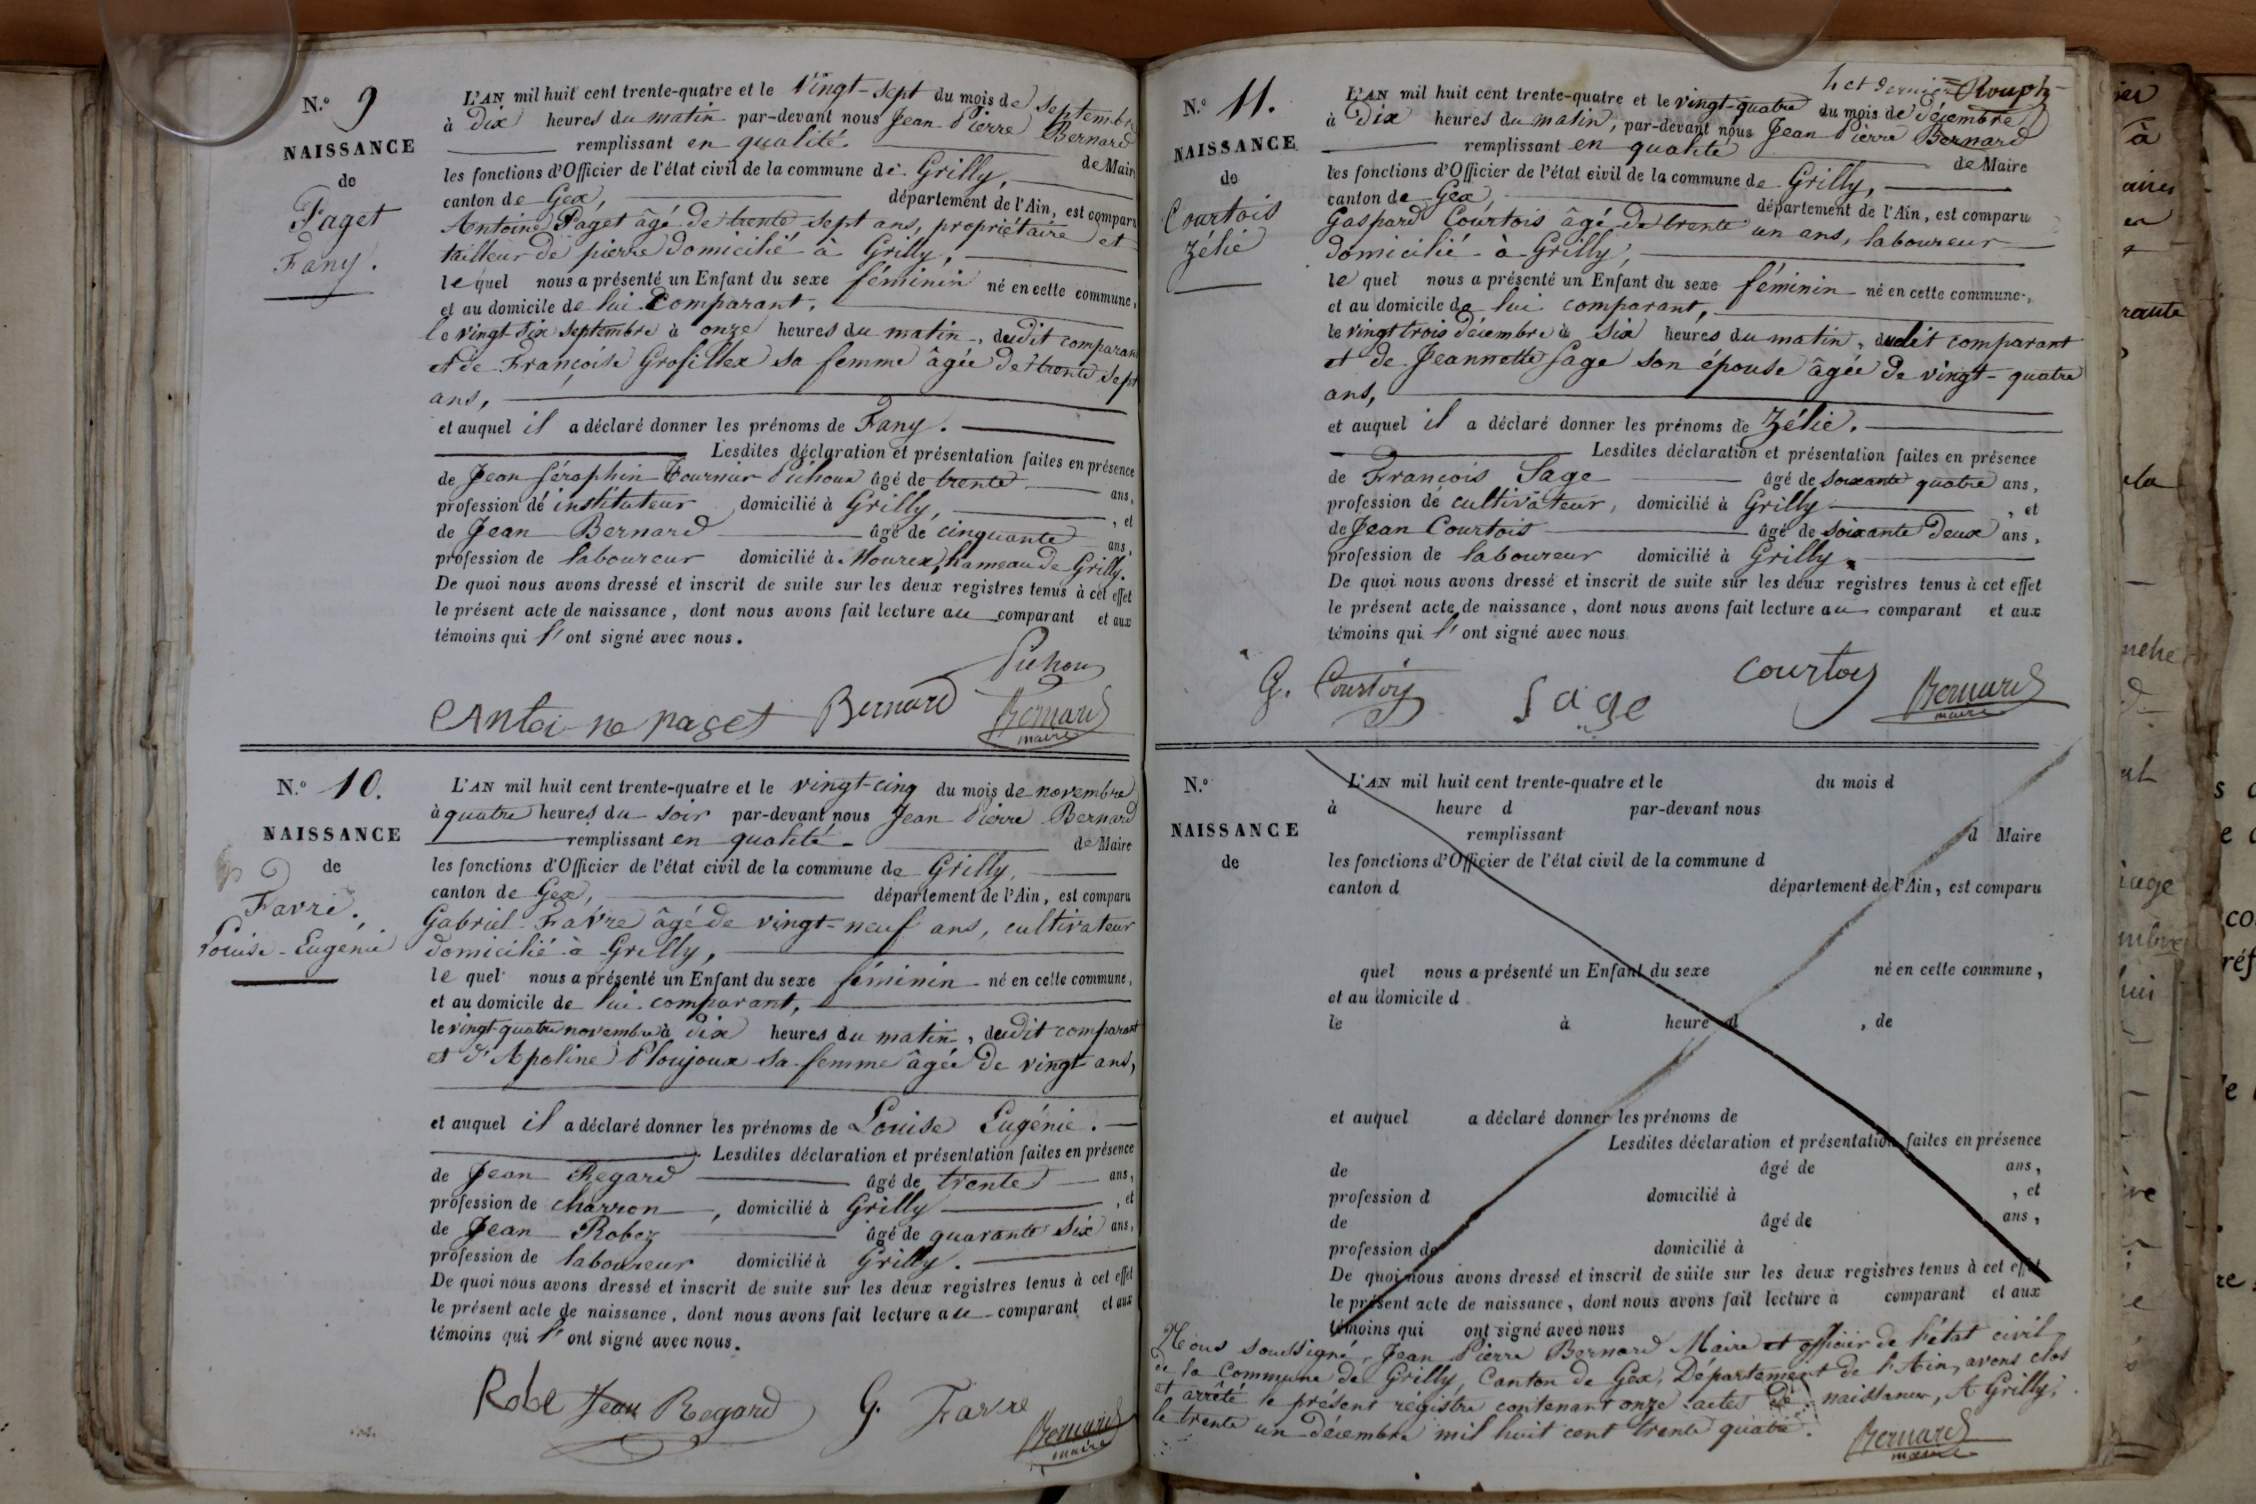 N.° 9
NAISSANCE
de
Paget
Fany.
L'AN mil huit cent trente-quatre et le vingt-sept du mois de septembre
à dix heures du matin par-devant nous Jean Pierre Bernard
remplissant en qualité de Maire
les fonctions d'Officier de l'état civil de la commune de Grilly,
canton de Gex, département de l'Ain, est comparu
Antoine Paget âgé de trente sept ans, propriétaire et
tailleur de pierre domicilié à Grilly,
le quel nous a présenté un Enfant du sexe féminin né en cette commune,
et au domicile de lui comparant,
le vingt six septembre à onze heures du matin, dudit comparant
et de Françoise Grosfillex sa femme âgée de trente sept
ans,
et auquel il a déclaré donner les prénoms de Fany.
Lesdites déclaration et présentation faites en présence
de Jean Séraphin Tournier Pichoux âgé de trente ans,
profession de instituteur domicilié à Grilly, , et
de Jean Bernard âgé de cinquante ans,
profession de laboureur domicilié à Mourex, hameau de Grilly.
De quoi nous avons dressé et inscrit de suite sur les deux registres tenus à cet effet
le présent acte de naissance, dont nous avons fait lecture au comparant et aux
témoins qui l' ont signé avec nous.
Antoine paget Bernard Bernard
maire
N.° 10.
NAISSANCE
de
Favre.
Louise-Eugénie
L'AN mil huit cent trente-quatre et le vingt-cinq du mois de novembre
à quatre heures du soir par-devant nous Jean Pierre Bernard
remplissant en qualité de Maire
les fonctions d'Officier de l'état civil de la commune de Grilly,
canton de Gex, département de l'Ain, est comparu
Gabriel Favre âgé de vingt-neuf ans, cultivateur
domicilié à Grilly,
le quel nous a présenté un Enfant du sexe féminin né en cette commune,
et au domicile de lui comparant,
le vingt-quatre novembre à dix heures du matin, dudit comparant
et d'Apoline Ploujoux sa femme âgée de vingt ans,
et auquel il a déclaré donner les prénoms de Louise Eugénie.
Lesdites déclaration et présentation faites en présence
de Jean Regard âgé de trente ans,
profession de charron, domicilié à Grilly , et
de Jean Robez âgé de quarante six ans,
profession de laboureur domicilié à Grilly.
De quoi nous avons dressé et inscrit de suite sur les deux registres tenus à cet effet
le présent acte de naissance, dont nous avons fait lecture au comparant et aux
témoins qui l' ont signé avec nous.
Robe Jean Regard G. Favre Bernard
maire
N.° 11.
NAISSANCE
de
Courtois
Zélie
et dernier
L'AN mil huit cent trente-quatre et le vingt-quatre du mois de décembre
à dix heures du matin, par-devant nous Jean Pierre Bernard
remplissant en qualité de Maire
les fonctions d'Officier de l'état civil de la commune de Grilly,
canton de Gex département de l'Ain, est comparu
Gaspard Courtois âgé de trente un ans, laboureur
domicilié à Grilly,
le quel nous a présenté un Enfant du sexe féminin né en cette commune,
et au domicile de lui comparant,
le vingt trois décembre à six heures du matin, dudit comparant
et de Jeannette Sage son épouse âgée de vingt-quatre
ans,
et auquel il a déclaré donner les prénoms de Zélie.
Lesdites déclaration et présentation faites en présence
de François Sage âgé de soixante quatre ans,
profession de cultivateur, domicilié à Grilly , et
de Jean Courtois âgé de soixante deux ans,
profession de laboureur domicilié à Grilly.
De quoi nous avons dressé et inscrit de suite sur les deux registres tenus à cet effet
le présent acte de naissance, dont nous avons fait lecture au comparant et aux
témoins qui l' ont signé avec nous
G. Courtois Sage Courtois Bernard
maire
N.°
NAISSANCE
de
L'AN mil huit cent trente-quatre et le du mois d
à heure d par-devant nous
remplissant d Maire
les fonctions d'Officier de l'état civil de la commune d
canton d département de l'Ain, est comparu
quel nous a présenté un Enfant du sexe né en cette commune,
et au domicile d
le à heure d , de
et auquel a déclaré donner les prénoms de
Lesdites déclaration et présentation faites en présence
de âgé de ans,
profession d domicilié à , et
de âgé de ans,
profession de domicilié à
De quoi nous avons dressé et inscrit de suite sur les deux registres tenus à cet effet
le présent acte de naissance, dont nous avons fait lecture à comparant et aux
témoins qui ont signé avec nous
Nous soussigné, Jean Pierre Bernard Maire et officier de l'état civil
de la Commune de Grilly, Canton de Gex, Département de l'Ain, avons clos
et arrêté le présent régistre contenant onze actes de naissance, A Grilly,
le trente un décembre mil huit cent trente quatre.
Bernard
maire